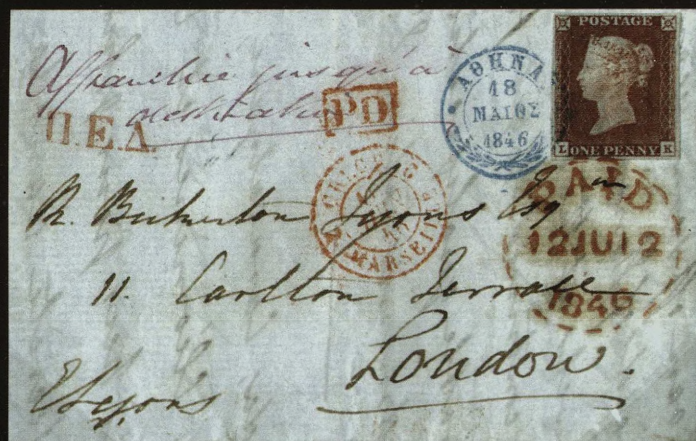 Affranchie jusqu'à
destination
Π.Ε.Δ.
PD
ΑΘΗΝΑ
18
ΜΑΙΟΣ
1846
POSTAGE
L ONE PENNY K
MARSEILLE
PAID
12 JU 12
1846
R. Bickerton Lyons Esqre
11. Carlton Terrace
London.
ELyons